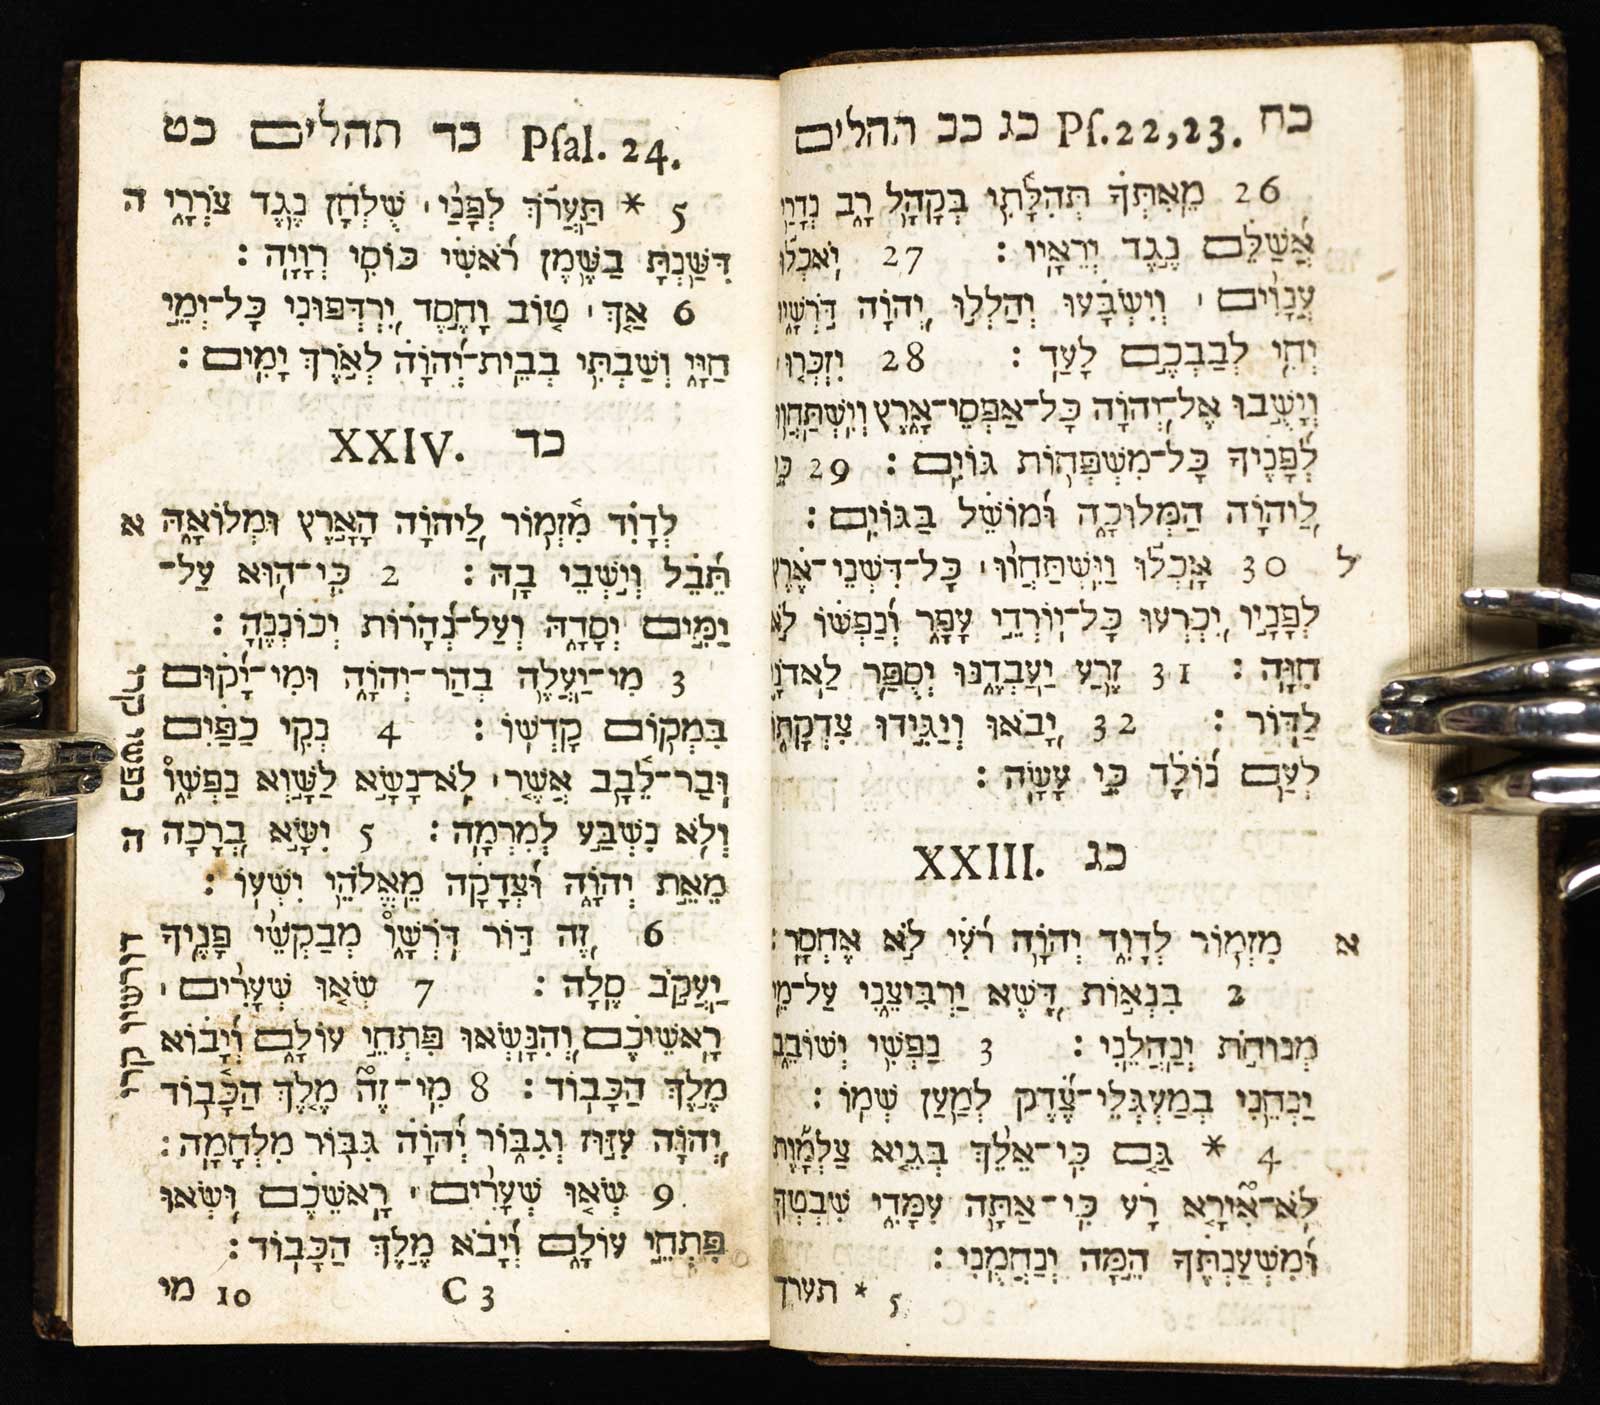 כח Ps. 22,23. כג כב תהלים
26 מֵאִתְּךָ תְהִלָּתִי בְּקָהָל רָב נְדָרַי
אֲשַׁלֵּם נֶגֶד יְרֵאָיו : 27 יֹאכְלוּ
עֲנָוִים ׀ וְיִשְׂבָּעוּ יְהַלְלוּ יְהוָֹה דֹּרְשָׁיו
יְחִי לְבַבְכֶם לָעַד : 28 יִזְכְּרוּ ׀
וְיָשֻׁבוּ אֶל־יְהוָֹה כָּל־אַפְסֵי־אָרֶץ וְיִשְׁתַּחֲווּ
לְפָנֶיךָ כָּל־מִשְׁפְּחוֹת גּוֹיִם : 29 כִּי
לַיהוָֹה הַמְּלוּכָה וּמוֹשֵׁל בַּגּוֹיִם :
ל 30 אָכְלוּ וַיִּשְׁתַּחֲווּ ׀ כָּל־דִּשְׁנֵי־אֶרֶץ
לְפָנָיו יִכְרְעוּ כָּל־יוֹרְדֵי עָפָר וְנַפְשׁוֹ לֹא
חִיָּה : 31 זֶרַע יַעַבְדֶנּוּ יְסֻפַּר לַאדֹנָי
לַדּוֹר : 32 יָבֹאוּ וְיַגִּידוּ צִדְקָתוֹ
לְעַם נוֹלָד כִּי עָשָׂה :
XXIII. כג
א מִזְמוֹר לְדָוִד יְהוָֹה רֹעִי לֹא אֶחְסָר :
2 בִּנְאוֹת דֶּשֶׁא יַרְבִּיצֵנִי עַל־מֵי
מְנוּחֹת יְנַהֲלֵנִי : 3 נַפְשִׁי יְשׁוֹבֵב
יַנְחֵנִי בְמַעְגְּלֵי־צֶדֶק לְמַעַן שְׁמוֹ :
4 * גַּם כִּי־אֵלֵךְ בְּגֵיא צַלְמָוֶת
לֹא־אִירָא רָע כִּי־אַתָּה עִמָּדִי שִׁבְטְךָ
וּמִשְׁעַנְתֶּךָ הֵמָּה יְנַחֲמֻנִי :
5 * תערך
Psal. 24. כד תהלים כט
5 * תַּעֲרֹךְ לְפָנַי ׀ שֻׁלְחָן נֶגֶד צֹרְרָי ה
דִּשַּׁנְתָּ בַשֶּׁמֶן רֹאשִׁי כּוֹסִי רְוָיָה :
6 אַךְ ׀ טוֹב וָחֶסֶד יִרְדְּפוּנִי כָּל־יְמֵי
חַיָּי וְשַׁבְתִּי בְּבֵית־יְהוָֹה לְאֹרֶךְ יָמִים :
XXIV. כד
לְדָוִד מִזְמוֹר לַיהוָֹה הָאָרֶץ וּמְלוֹאָהּ א
תֵּבֵל וְיֹשְׁבֵי בָהּ : 2 כִּי־הוּא עַל־
יַמִּים יְסָדָהּ וְעַל־נְהָרוֹת יְכוֹנְנֶהָ :
3 מִי־יַעֲלֶה בְהַר־יְהוָֹה וּמִי־יָקוּם
בִּמְקוֹם קָדְשׁוֹ : 4 נְקִי כַפַּיִם
וּבַר־לֵבָב אֲשֶׁר ׀ לֹא־נָשָׂא לַשָּׁוְא נַפְשׁוֹ
נפשי קרי
וְלֹא נִשְׁבַּע לְמִרְמָה : 5 יִשָּׂא בְרָכָה ה
מֵאֵת יְהוָֹה וּצְדָקָה מֵאֱלֹהֵי יִשְׁעוֹ :
6 זֶה דּוֹר דֹּרְשָׁו מְבַקְשֵׁי פָנֶיךָ
יַעֲקֹב סֶלָה : 7 שְׂאוּ שְׁעָרִים ׀
דורשיו קרי
רָאשֵׁיכֶם וְהִנָּשְׂאוּ פִּתְחֵי עוֹלָם וְיָבוֹא
מֶלֶךְ הַכָּבוֹד : 8 מִי־זֶה מֶלֶךְ הַכָּבוֹד
יְהוָֹה עִזּוּז וְגִבּוֹר יְהוָֹה גִּבּוֹר מִלְחָמָה :
9 שְׂאוּ שְׁעָרִים ׀ רָאשֵׁכֶם וּשְׂאוּ
פִּתְחֵי עוֹלָם וְיָבֹא מֶלֶךְ הַכָּבוֹד :
C 3 10 מי